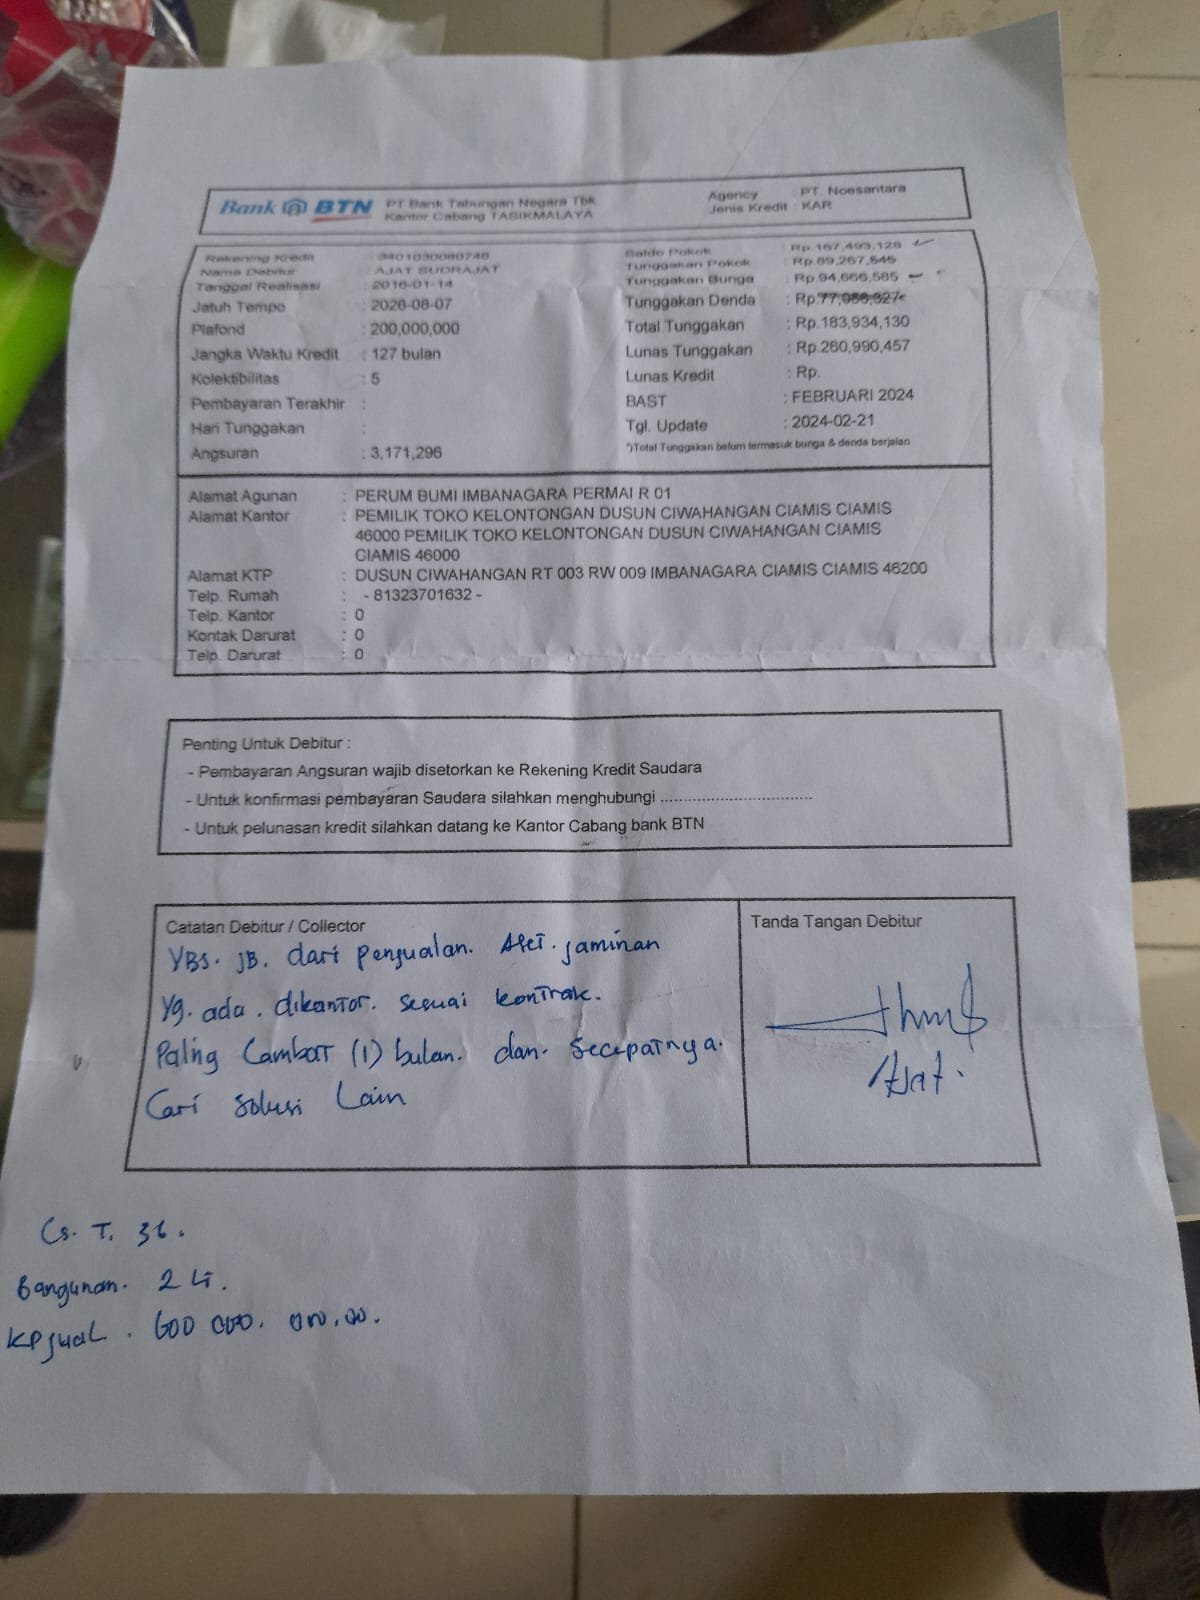 Bank BTN
PT Bank Tabungan Negara Tbk
Kantor Cabang TASIKMALAYA
Agency : PT. Noesantara
Jenis Kredit : KAR
Rekening Kredit :
Nama Debitur : AJAT SUDRAJAT
Tanggal Realisasi : 2016-01-14
Jatuh Tempo : 2026-08-07
Plafond : 200,000,000
Jangka Waktu Kredit : 127 bulan
Kolektibilitas : 5
Pembayaran Terakhir :
Hari Tunggakan :
Angsuran : 3,171,296
Saldo Pokok : Rp.167,493,128
Tunggakan Pokok : Rp.89,267,545
Tunggakan Bunga : Rp.94,666,585
Tunggakan Denda : Rp.77,056,327
Total Tunggakan : Rp.183,934,130
Lunas Tunggakan : Rp.260,990,457
Lunas Kredit : Rp.
BAST : FEBRUARI 2024
Tgl. Update : 2024-02-21
*)Total Tunggakan belum termasuk bunga & denda berjalan
Alamat Agunan : PERUM BUMI IMBANAGARA PERMAI R 01
Alamat Kantor : PEMILIK TOKO KELONTONGAN DUSUN CIWAHANGAN CIAMIS CIAMIS
46000 PEMILIK TOKO KELONTONGAN DUSUN CIWAHANGAN CIAMIS
CIAMIS 46000
Alamat KTP : DUSUN CIWAHANGAN RT 003 RW 009 IMBANAGARA CIAMIS CIAMIS 46200
Telp. Rumah : - 81323701632 -
Telp. Kantor : 0
Kontak Darurat : 0
Telp. Darurat : 0
Penting Untuk Debitur :
- Pembayaran Angsuran wajib disetorkan ke Rekening Kredit Saudara
- Untuk konfirmasi pembayaran Saudara silahkan menghubungi ..................................
- Untuk pelunasan kredit silahkan datang ke Kantor Cabang bank BTN
Catatan Debitur / Collector
YBS. JB. dari penjualan. jaminan
Yg. ada. dikantor. sesuai kontrak.
Paling Lambatt (1) bulan. dan. Secepatnya.
Cari Solusi Lain
Tanda Tangan Debitur
Ajat.
Cs. T. 36.
Bangunan. 2 Lt.
KP jual. 600 000. 000.00.